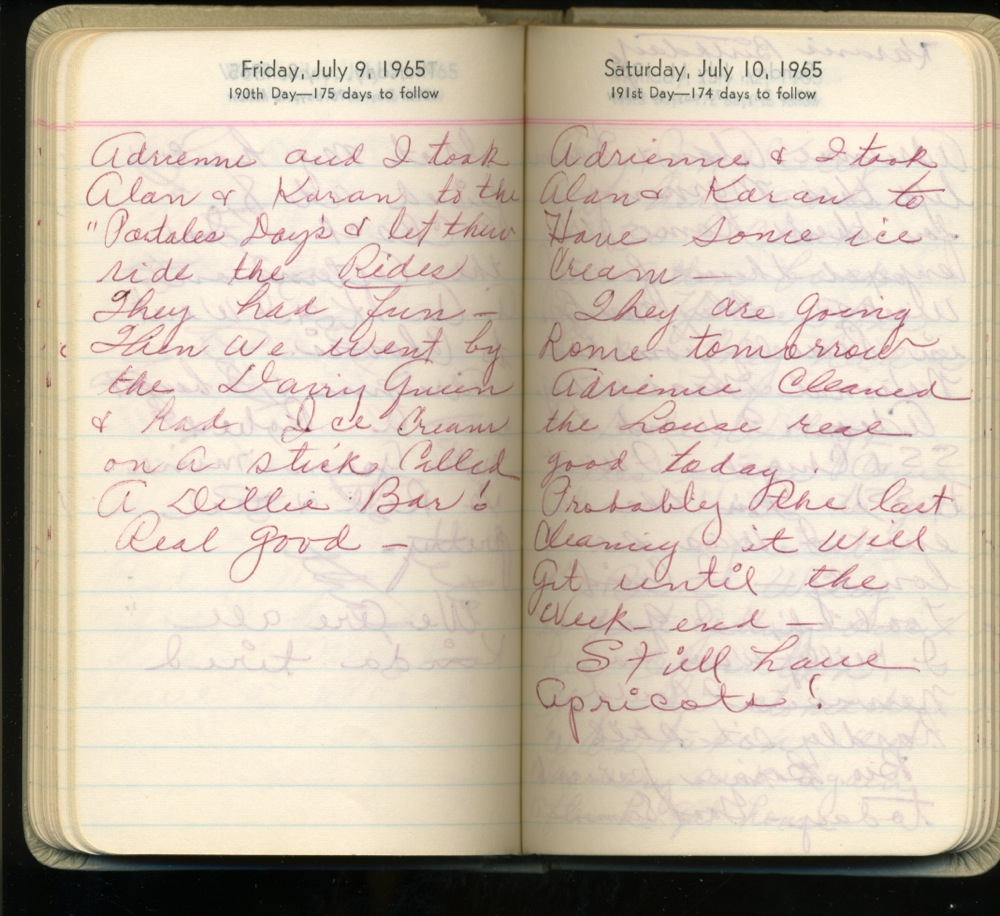 Friday, July 9, 1965
190th Day—175 days to follow
Adrienne and I took
Alan & Karan to the
"Portales Days & let them
ride the Rides
They had fun —
Then we went by
the Dairy Queen
& had Ice Cream
on A stick Called
A Dillie Bar!
Real good —
We are all
Kinda tired
Saturday, July 10, 1965
191st Day—174 days to follow
Adrienne & I took
Alan & Karan to
Have Some ice
Cream —
They are going
Home tomorrow
Adrienne Cleaned
the house real
good today.
Probably the last
Cleaning it will
Get until the
Week-end —
Still have
Apricots!